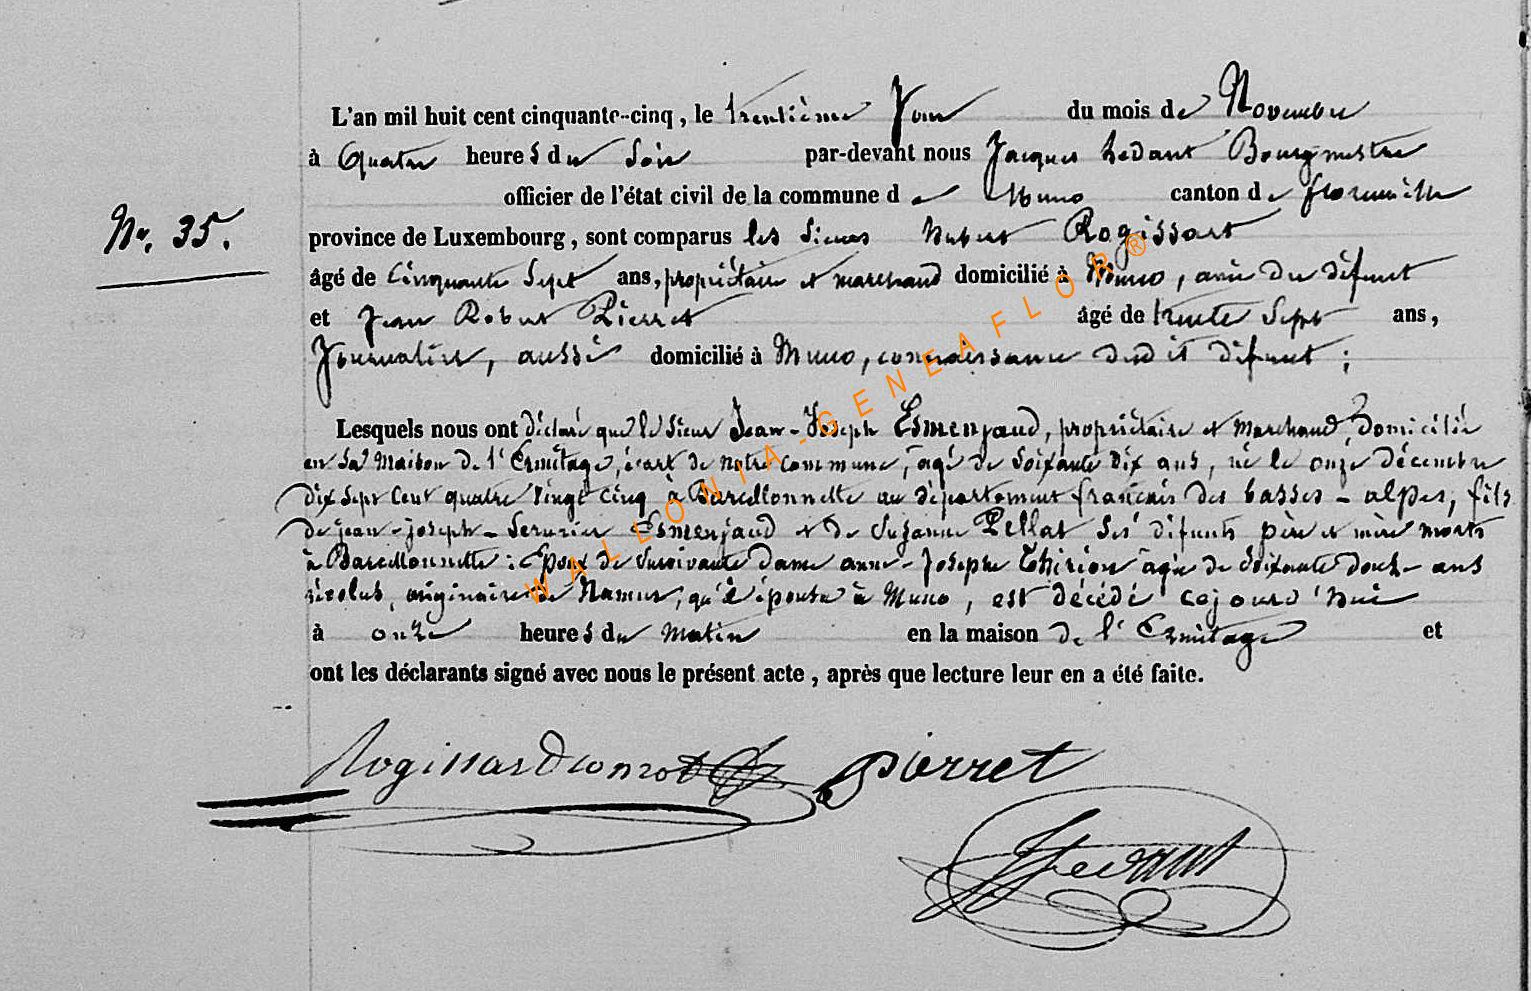 L'an mil huit cent cinquante-cinq, le trentième Jour du mois de Novembre
à Quatre heures du Soir par-devant nous Jacques Ledant Bourgmestre
officier de l'état civil de la commune de Muno canton de florenville
Nr. 35.
province de Luxembourg, sont comparus les Sieurs Hubert Rogissart
âgé de Cinquante Sept ans, propriétaire et marchand domicilié à Muno, ami du défunt
et Jean Robert Pierret âgé de trente Sept ans,
Journalier, aussi domicilié à Muno, connaissance dudit défunt ;
Lesquels nous ont déclaré que le Sieur Jean-Joseph Esmenjaud, propriétaire et Marchand, Domicilié
en Sa Maison de l'Ermitage, écart de notre Commune, agé de Soixante Dix ans, né le onze décembre
dix Sept Cent quatre Vingt Cinq à Barcellonnette au département français des basses-alpes, fils
de jean-joseph- Esmenjaud et de Suzanne Pellat Ses défunts père et mère morts
à Barcellonnette : Epoux de Survivante dame anne-Josephe Thirion agée de Soixante douze ans
révolus, originaire de Namur, qu'il épousa à Muno, est décédé cejourd'hui
à onze heures du Matin en la maison de l'Ermitage et
ont les déclarants signé avec nous le présent acte, après que lecture leur en a été faite.
pierret
JLedant
WALLONIA-GENEAFLOR®